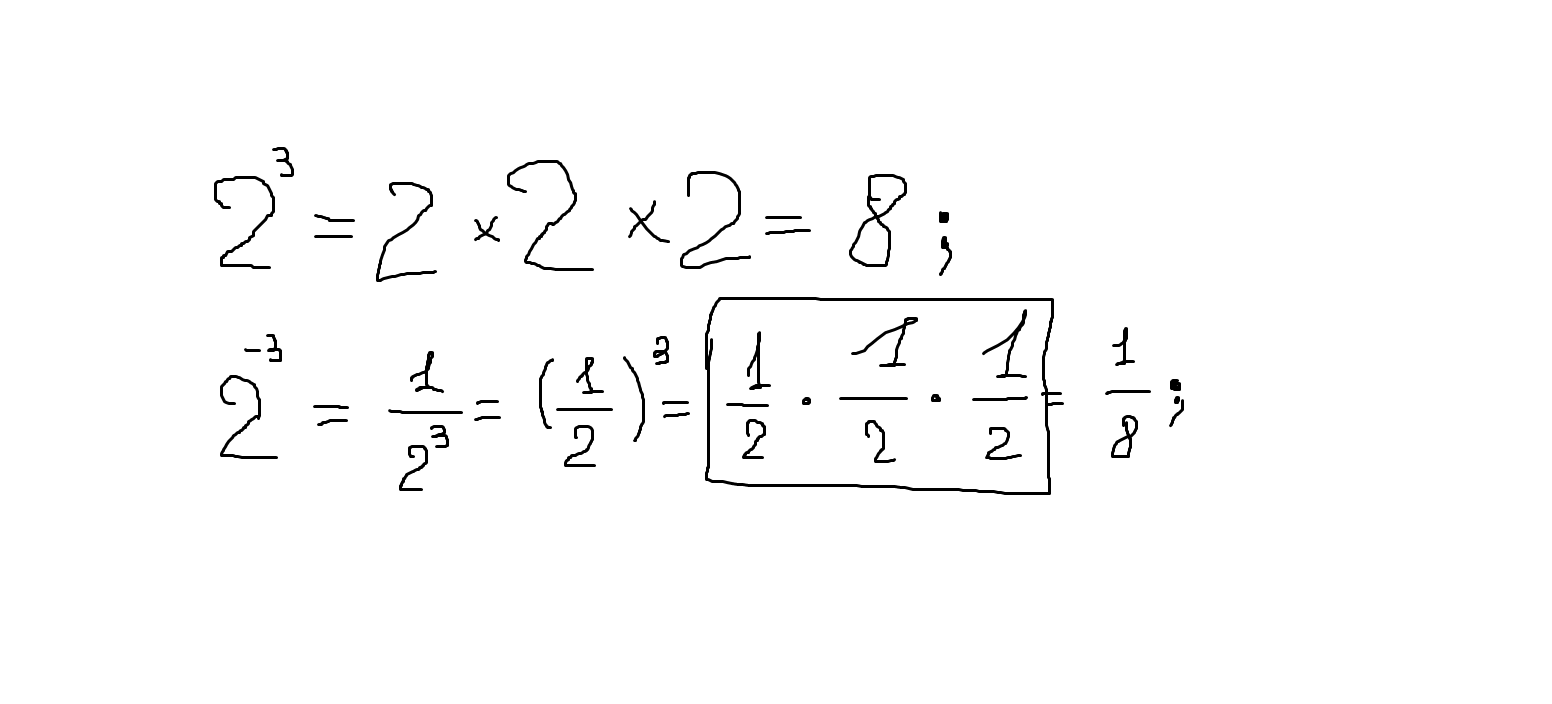 2³ = 2 × 2 × 2 = 8;
2⁻³ = 1/2³ = (1/2)³ = 1/2 · 1/2 · 1/2 = 1/8;